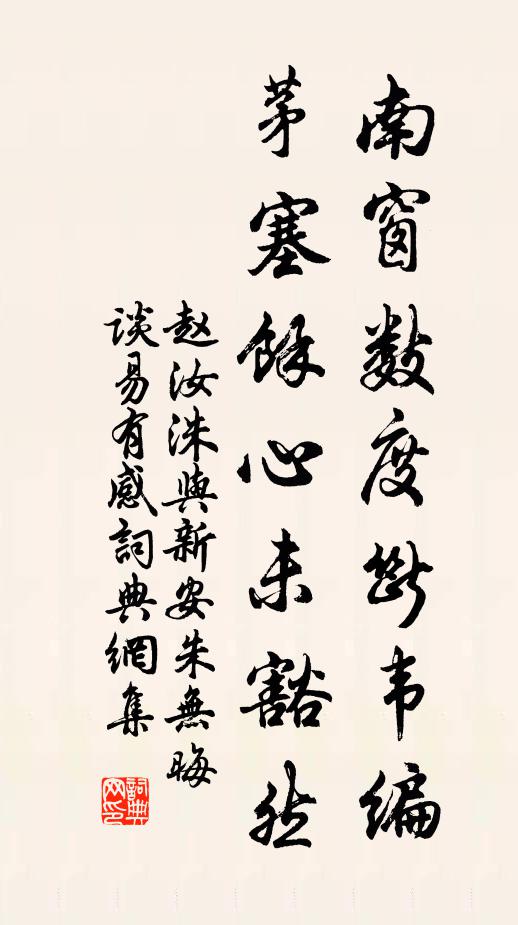 南窗数度断韦编
茅塞馀心未豁然
赵汝洙與新安朱無晦
谈易有感詞典網集
詞典网印